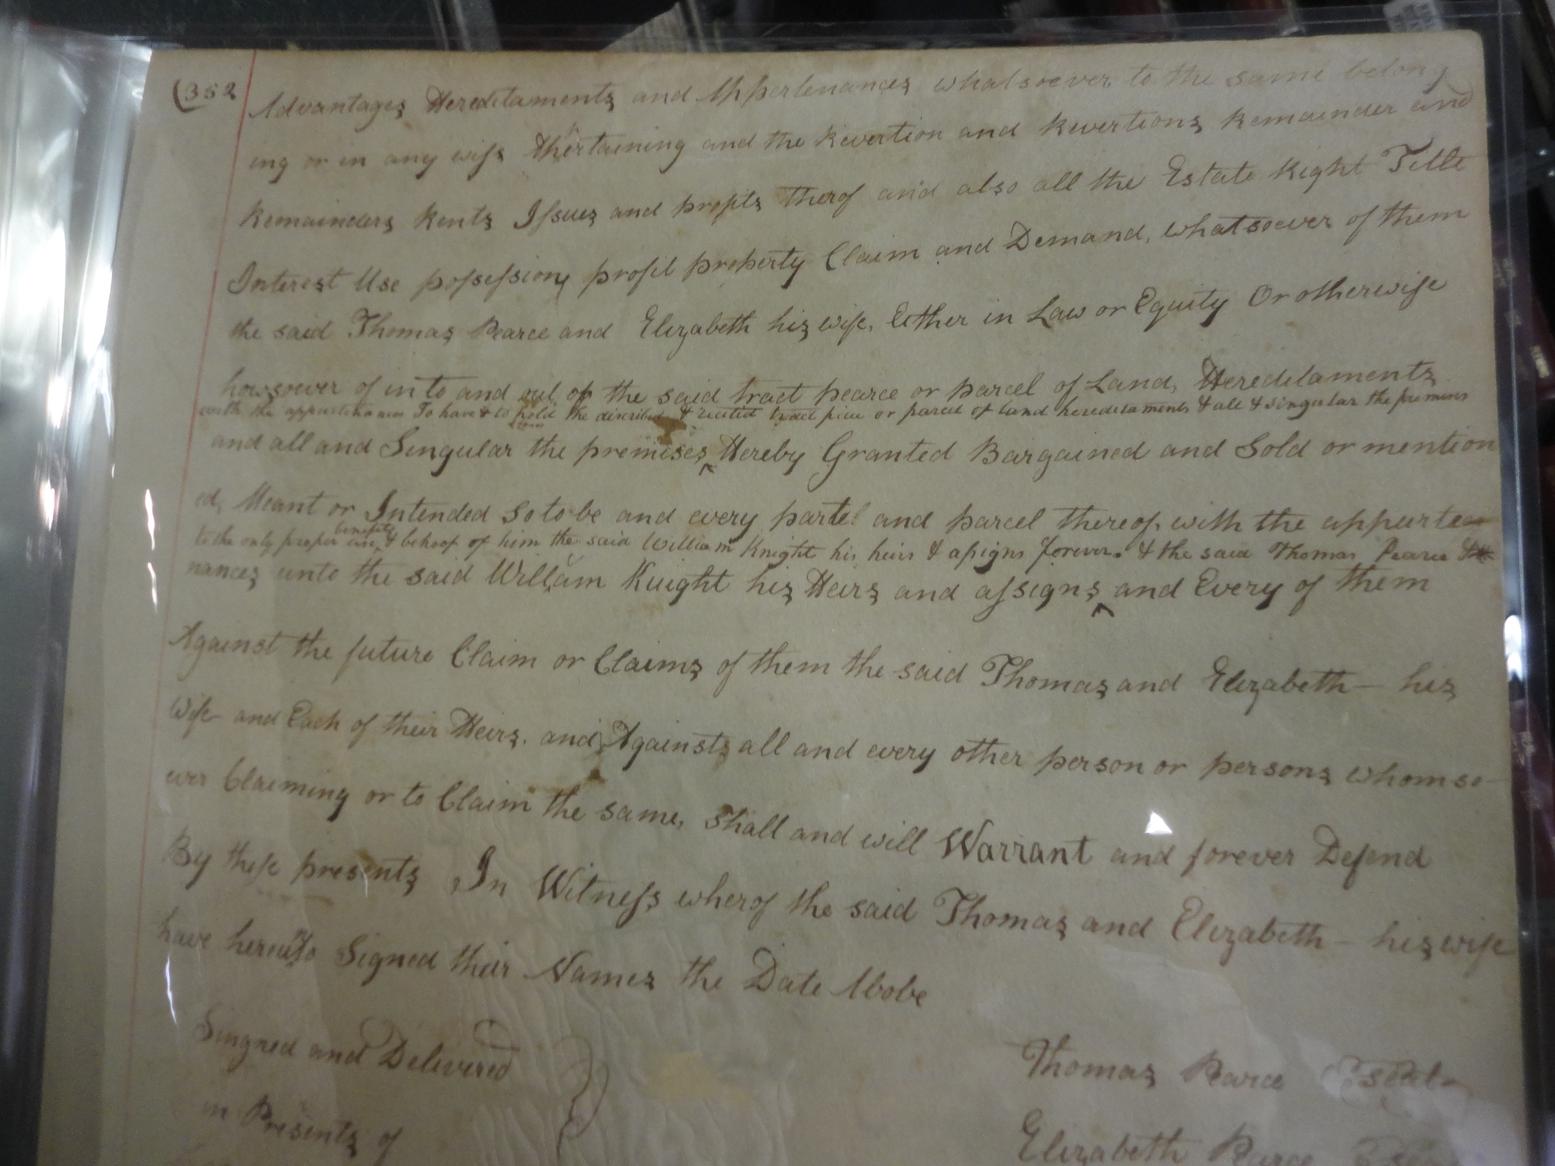 (352
Advantages Hereditaments and Appertenances whatsoever to the same belong
ing or in any wise Appertaining and the Revertion and Revertions Remainder and
Remainders Rents Issues and profits therof and also all the Estate Right Title
Interest Use possession profit property Claim and Demand, whatsoever of them
the said Thomas Pearce and Elizabeth his wife, Either in Law or Equity Or otherwise
howsoever of in to and out of the said tract pearce or parcel of Land, Hereditaments
with the appurtenances To have & to hold the described & recited tract piece or parcel of land hereditaments & all & singular the premises
and all and Singular the premises Hereby Granted Bargained and Sold or mention
ed, Meant or Intended so to be and every partel and parcel thereof with the appurte
to the only proper use, benefit & behoof of him the said William Knight his heirs & assigns forever. & the said Thomas Pearce
nances unto the said William Knight his Heirs and assigns and Every of them
Against the future Claim or Claims of them the said Thomas and Elizabeth — his
wife and Each of their Heirs, and Against all and every other person or persons whomso-
ever Claiming or to Claim the same, Shall and will Warrant and forever Defend
By these presents In Witness wherof the said Thomas and Elizabeth — his wife
have hereunto Signed their Names the Date Above
Singned and Delivered
in Presents of
Thomas Pearce
Elizabeth Pearce